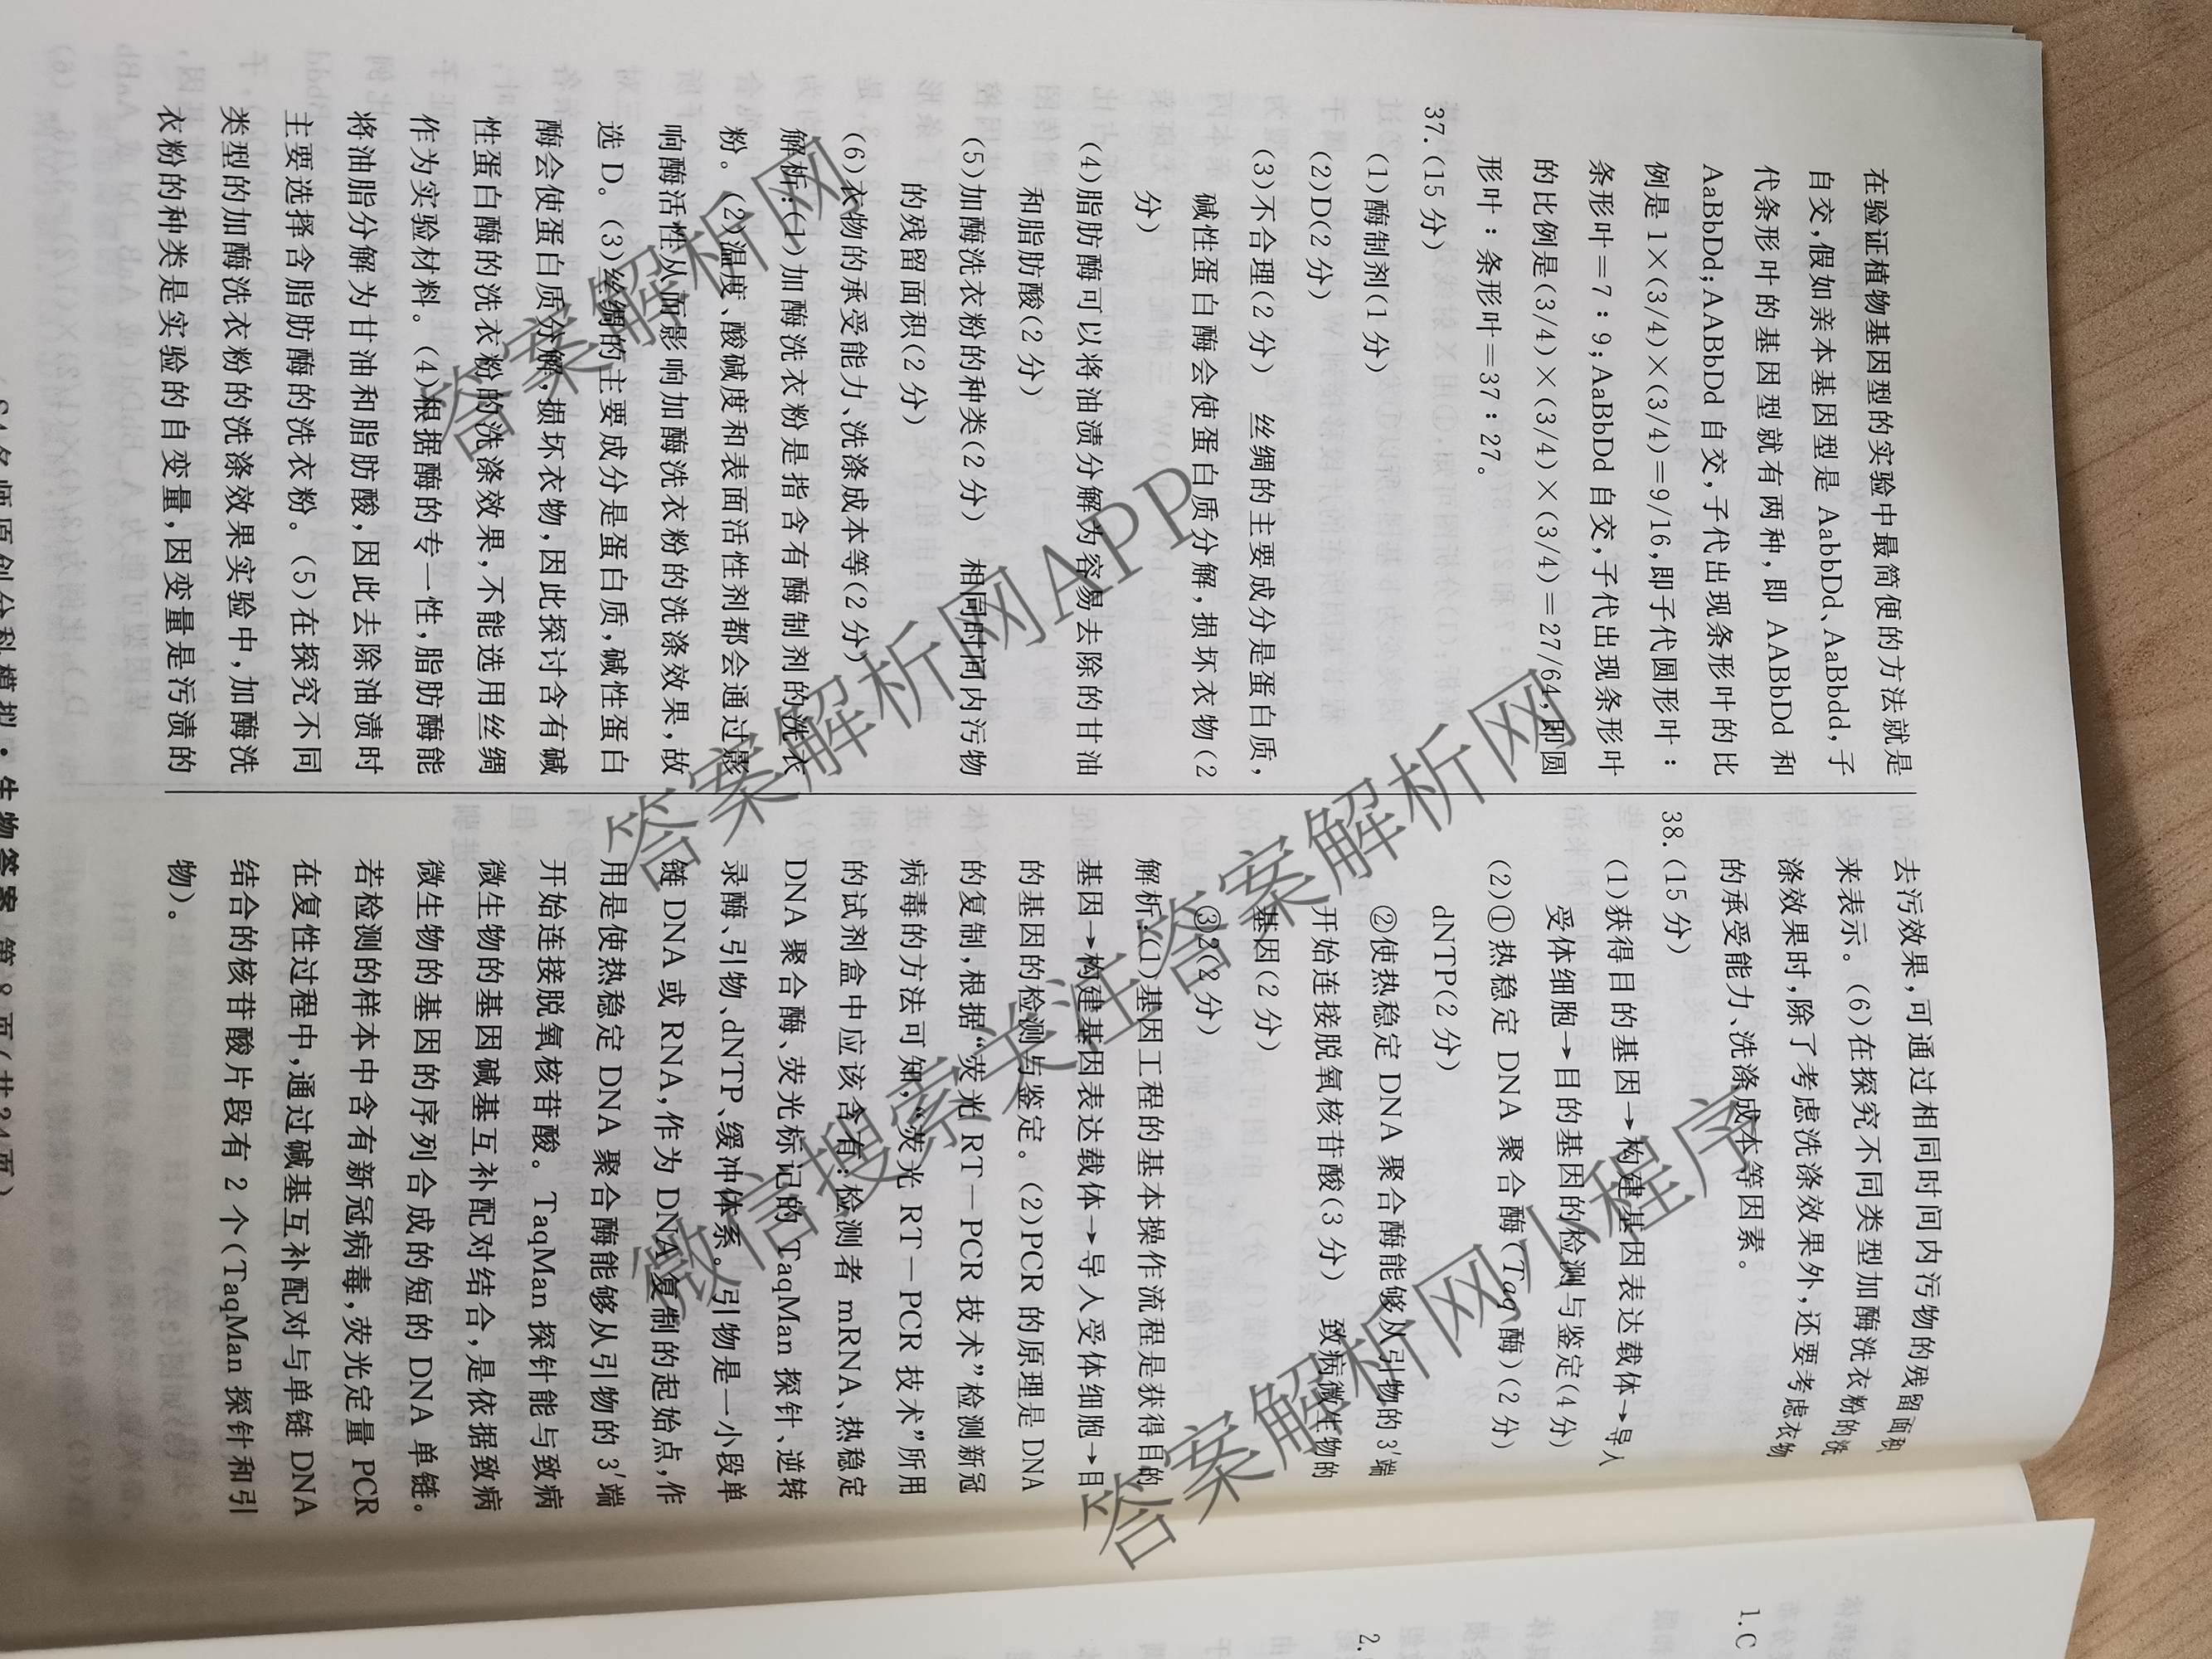 在验证植物基因型的实验中最简便的方法就是
自交,假如亲本基因型是 AabbDd、AaBbdd,子
代条形叶的基因型就有两种,即 AABbDd 和
AaBbDd;AABbDd 自交,子代出现条形叶的比
例是 1×(3/4)×(3/4)=9/16,即子代圆形叶:
条形叶=7:9;AaBbDd 自交,子代出现条形叶
的比例是(3/4)×(3/4)×(3/4)=27/64,即圆
形叶:条形叶=37:27。
37.(15 分)
(1)酶制剂(1 分)
(2)D(2 分)
(3)不合理(2 分) 丝绸的主要成分是蛋白质,
碱性蛋白酶会使蛋白质分解,损坏衣物(2
分)
(4)脂肪酶可以将油渍分解为容易去除的甘油
和脂肪酸(2 分)
(5)加酶洗衣粉的种类(2 分) 相同时间内污物
的残留面积(2 分)
(6)衣物的承受能力、洗涤成本等(2 分)
解析:(1)加酶洗衣粉是指含有酶制剂的洗衣
粉。(2)温度、酸碱度和表面活性剂都会通过影
响酶活性从而影响加酶洗衣粉的洗涤效果,故
选 D。(3)丝绸的主要成分是蛋白质,碱性蛋白
酶会使蛋白质分解,损坏衣物,因此探讨含有碱
性蛋白酶的洗衣粉的洗涤效果,不能选用丝绸
作为实验材料。(4)根据酶的专一性,脂肪酶能
将油脂分解为甘油和脂肪酸,因此去除油渍时
主要选择含脂肪酶的洗衣粉。(5)在探究不同
类型的加酶洗衣粉的洗涤效果实验中,加酶洗
衣粉的种类是实验的自变量,因变量是污渍的
去污效果,可通过相同时间内污物的残留面积
来表示。(6)在探究不同类型加酶洗衣粉的洗
涤效果时,除了考虑洗涤效果外,还要考虑衣物
的承受能力、洗涤成本等因素。
38.(15 分)
(1)获得目的基因→构建基因表达载体→导入
受体细胞→目的基因的检测与鉴定(4 分)
(2)①热稳定 DNA 聚合酶(Taq 酶)(2 分)
dNTP(2 分)
②使热稳定 DNA 聚合酶能够从引物的 3′端
开始连接脱氧核苷酸(3 分) 致病微生物的
基因(2 分)
③2(2 分)
解析:(1)基因工程的基本操作流程是获得目的
基因→构建基因表达载体→导入受体细胞→目
的基因的检测与鉴定。(2)PCR 的原理是 DNA
的复制,根据“荧光 RT-PCR 技术”检测新冠
病毒的方法可知,“荧光 RT-PCR 技术”所用
的试剂盒中应该含有:检测者 mRNA、热稳定
DNA 聚合酶、荧光标记的 TaqMan 探针、逆转
录酶、引物、dNTP、缓冲体系。引物是一小段单
链 DNA 或 RNA,作为 DNA 复制的起始点,作
用是使热稳定 DNA 聚合酶能够从引物的 3′端
开始连接脱氧核苷酸。TaqMan 探针能与致病
微生物的基因碱基互补配对结合,是依据致病
微生物的基因的序列合成的短的 DNA 单链。
若检测的样本中含有新冠病毒,荧光定量 PCR
在复性过程中,通过碱基互补配对与单链 DNA
结合的核苷酸片段有 2 个(TaqMan 探针和引
物)。
名师原创分科模拟·生物答案 第 8 页(共24页)
1. C
2.
答案解析网
答案解析网APP
微信搜索关注答案解析网
答案解析网小程序